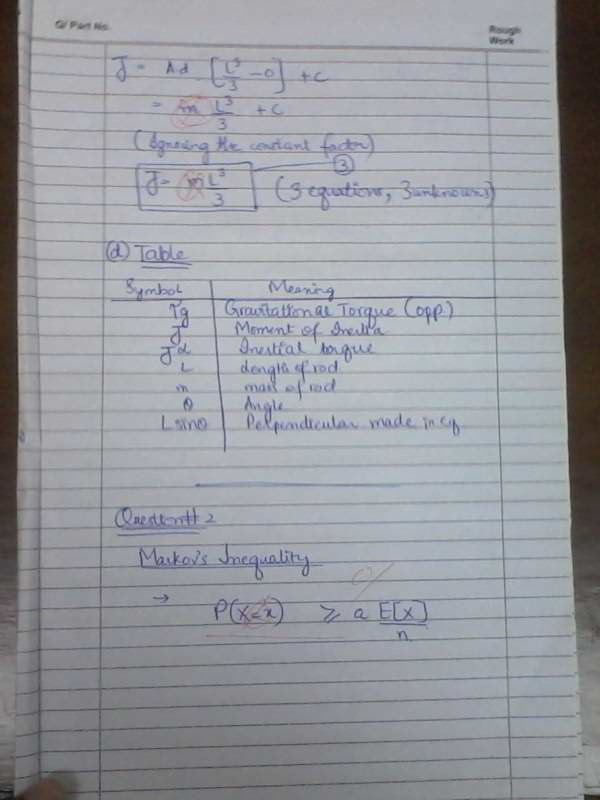 Q/ Part No.
Rough Work
J = Ad [L³/3 - 0] + C
= m L³/3 + C
(Ignoring the constant factor)
J = m L³/3 ③ (3 equations, 3 unknowns)
(d) Table
Symbol Meaning
Tg Gravitational Torque (opp.)
J Moment of Inertia
Jα Inertial torque
L Length of rod
m mass of rod
θ Angle
L sinθ Perpendicular made in cg
Question# 2
Markov's Inequality
→ P(X=x) ≥ a E[X]/n